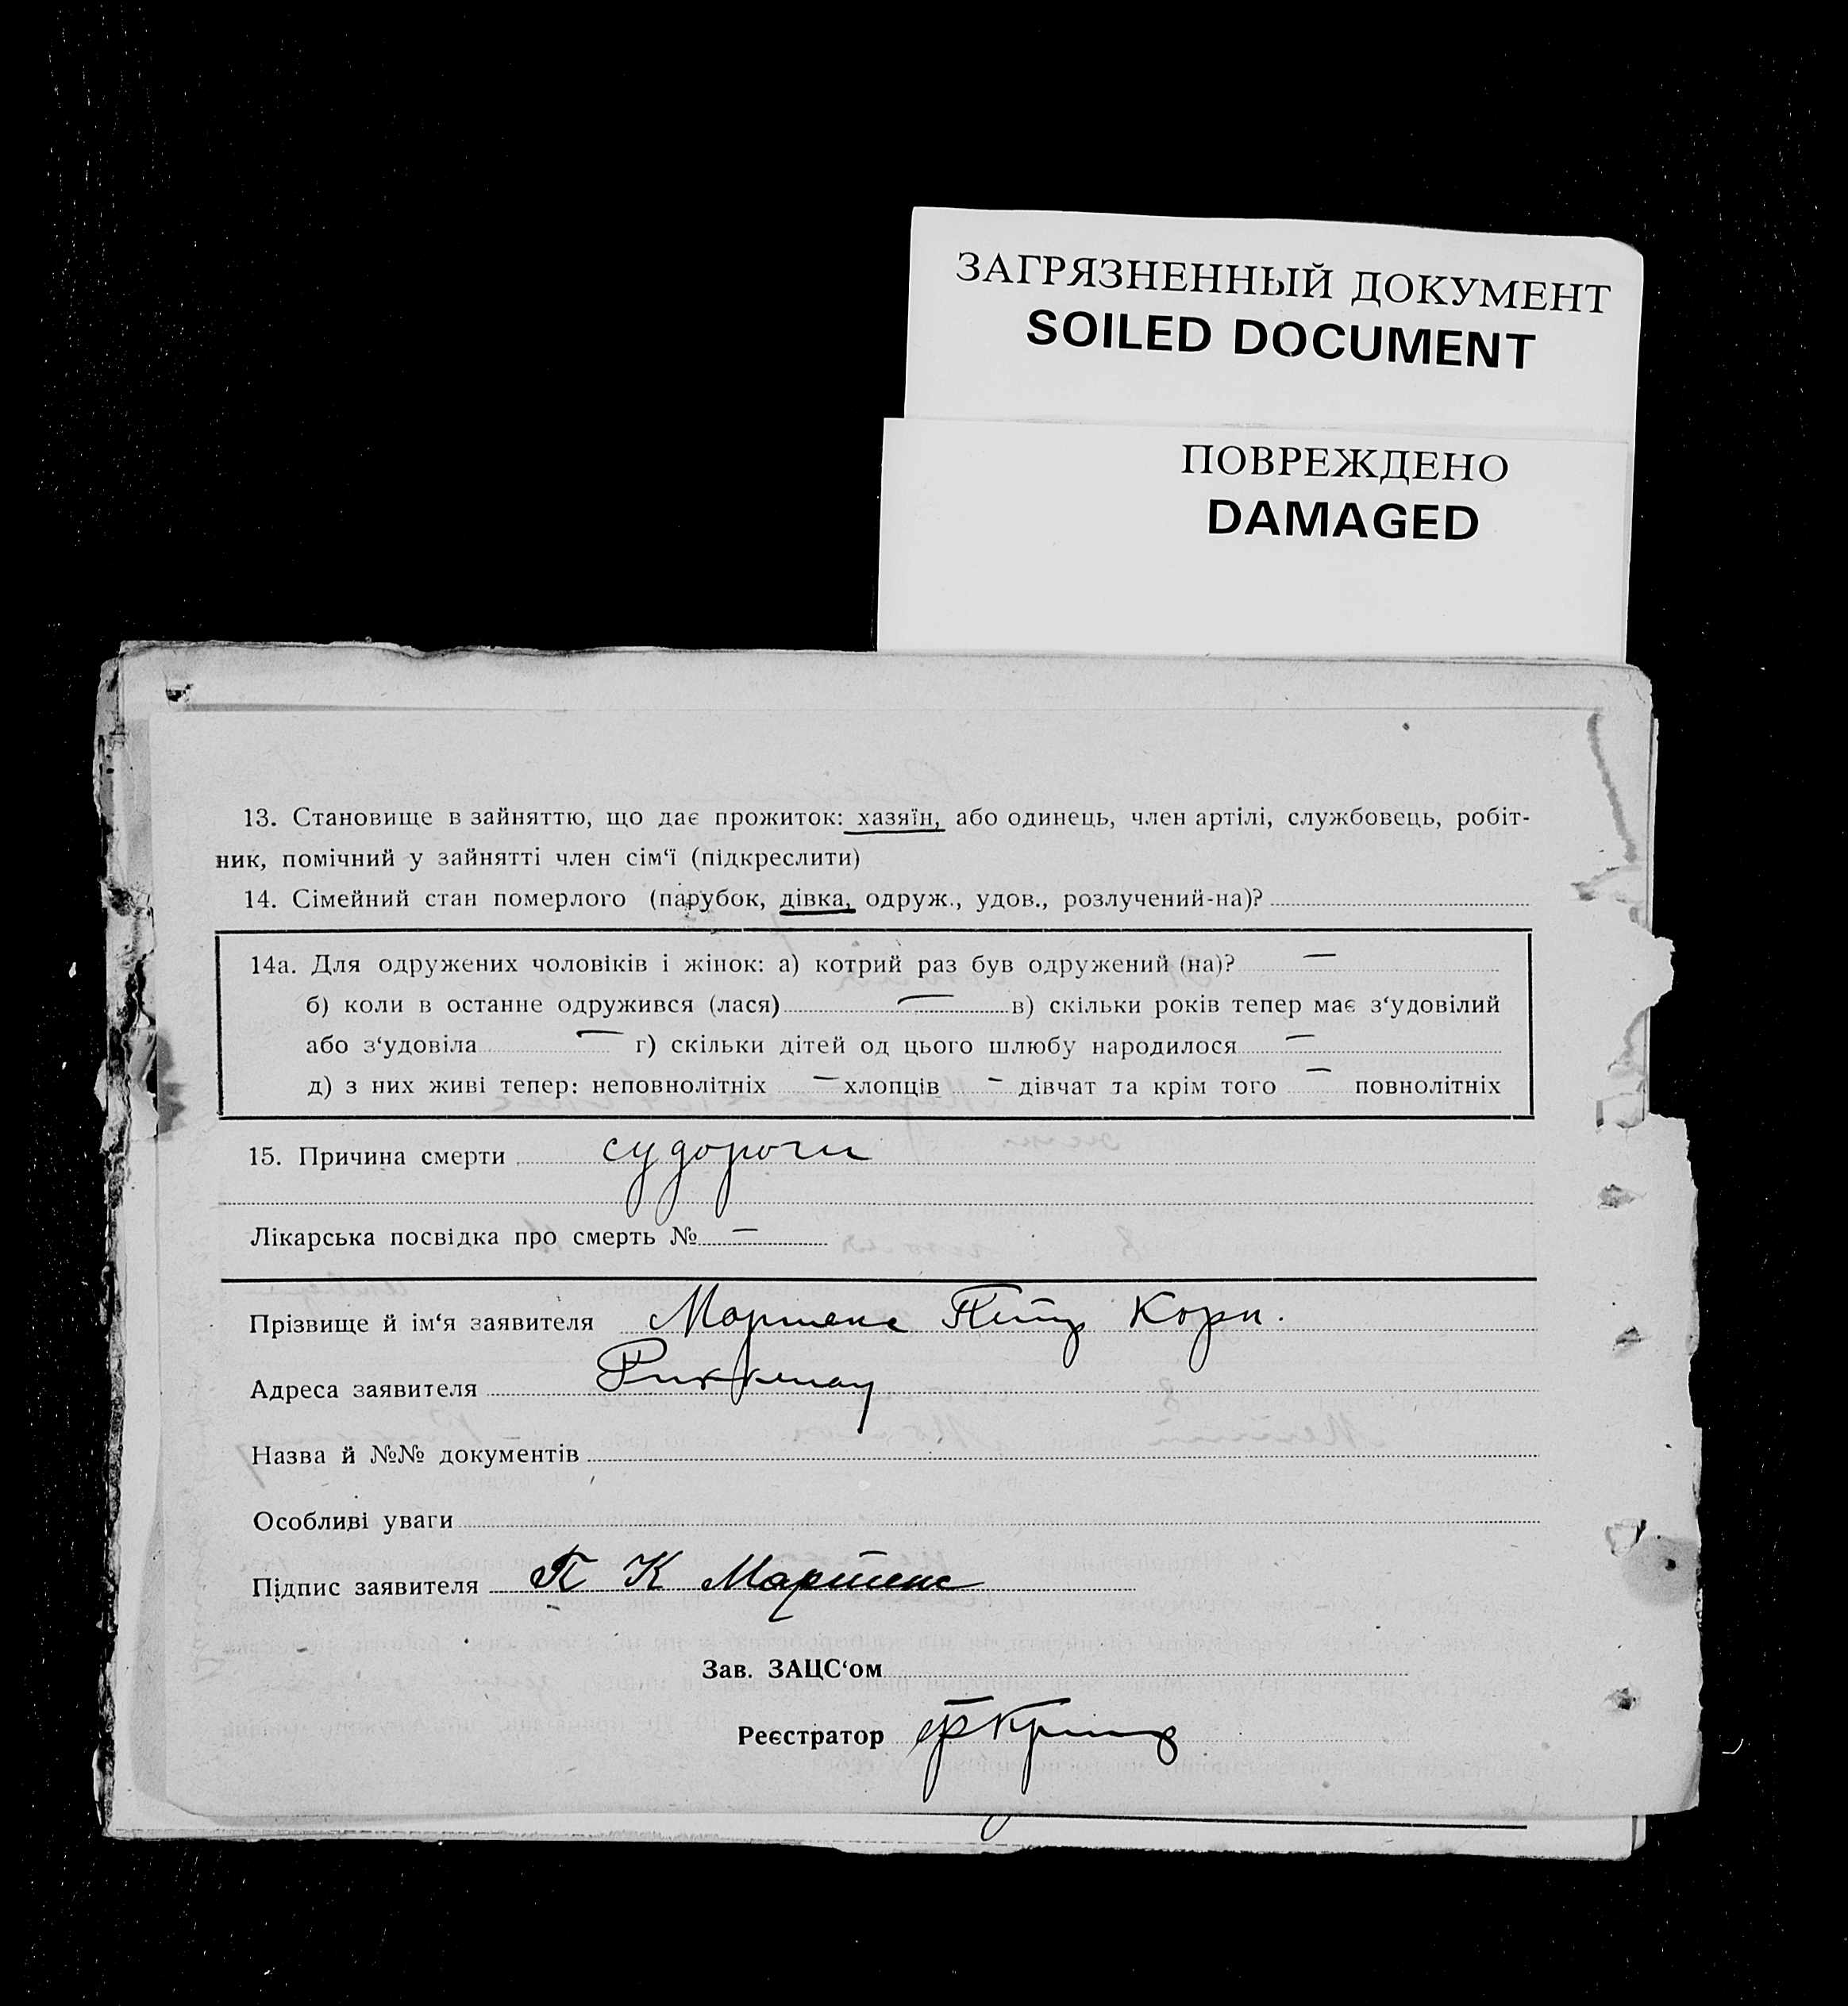 ЗАГРЯЗНЕННЫЙ ДОКУМЕНТ
SOILED DOCUMENT
ПОВРЕЖДЕНО
DAMAGED
13. Становище в зайняттю, що дає прожиток: хазяїн, або одинець, член артілі, службовець, робіт-
ник, помічний у зайнятті член сім‘ї (підкреслити)
14. Сімейний стан померлого (парубок, дівка, одруж., удов., розлучений-на)?
14а. Для одружених чоловіків і жінок: а) котрий раз був одружений (на)? —
б) коли в останнє одружився (лася) — в) скільки років тепер має з‘удовілий
або з‘удовіла — г) скільки дітей од цього шлюбу народилося —
д) з них живі тепер: неповнолітніх — хлопців — дівчат та крім того — повнолітніх
15. Причина смерти судороги
Лікарська посвідка про смерть № —
Прізвище й ім‘я заявителя Мартенс Петр Корн.
Адреса заявителя
Назва й №№ документів
Особливі уваги
Підпис заявителя П К Мартенс
Зав. ЗАЦС‘ом
Реєстратор